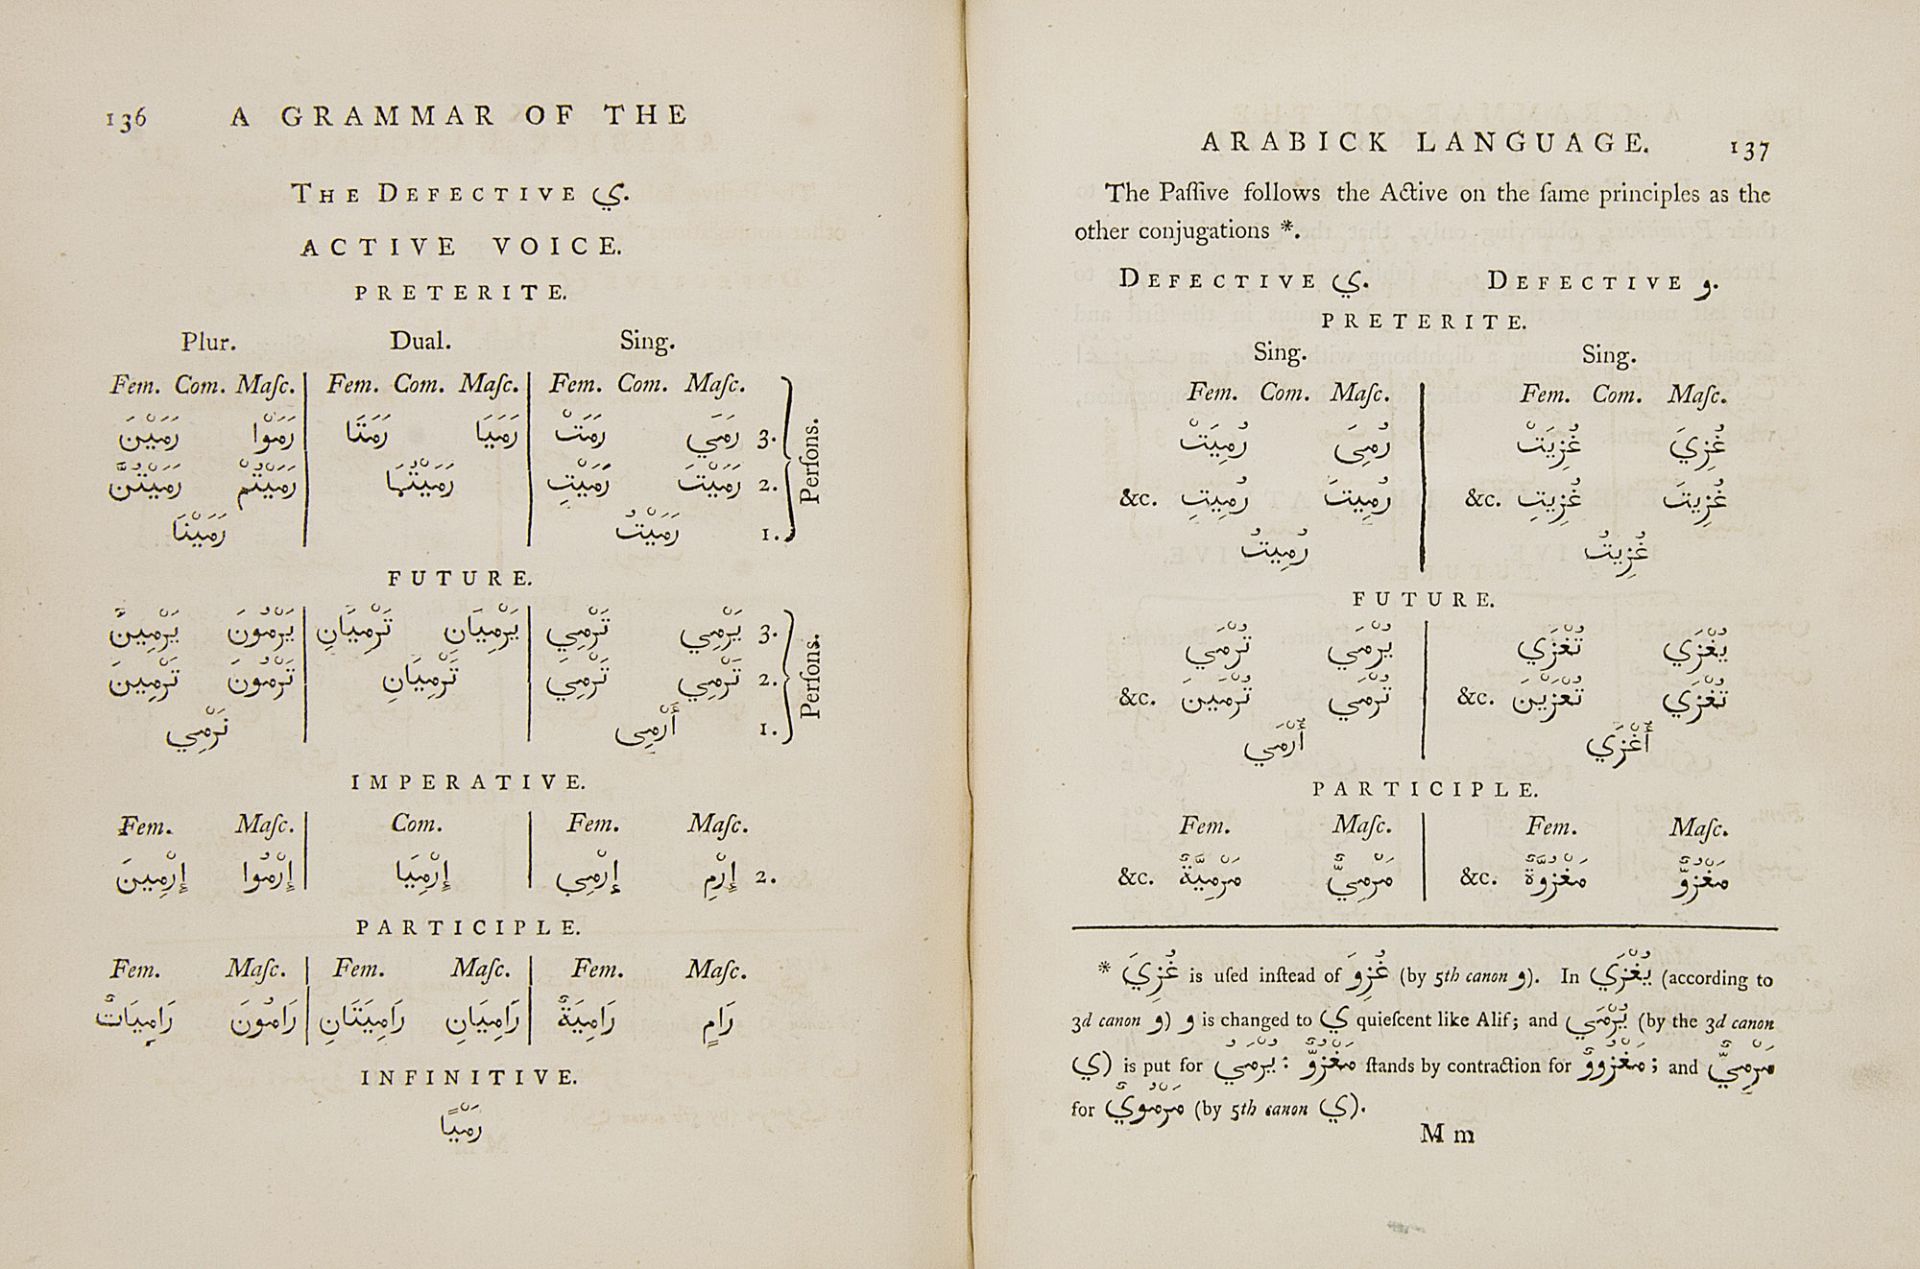 136 A GRAMMAR OF THE
THE DEFECTIVE ي.
ACTIVE VOICE.
PRETERITE.
Plur. Dual. Sing.
Fem. Com. Maſc. Fem. Com. Maſc. Fem. Com. Maſc.
رَمَيْنَ رَمَوْا رَمَتَا رَمَيَا رَمَتْ رَمَي 3.
رَمَيْتُنَّ رَمَيْتُمْ رَمَيْتُمَا رَمَيْتِ رَمَيْتَ 2.
رَمَيْنَا رَمَيْتُ 1.
Perſons.
FUTURE.
يَرْمِينَ يَرْمُونَ تَرْمِيَانِ يَرْمِيَانِ تَرْمِي يَرْمِي 3.
تَرْمِينَ تَرْمُونَ تَرْمِيَانِ تَرْمِيَ تَرْمِي 2.
نَرْمِي أَرْمِى 1.
Perſons.
IMPERATIVE.
Fem. Maſc. Com. Fem. Maſc.
إِرْمِينَ إِرْمُوا إِرْمِيَا إِرْمِي إِرْمِ 2.
PARTICIPLE.
Fem. Maſc. Fem. Maſc. Fem. Maſc.
رَامِيَاتٌ رَامُونَ رَامِيَتَانِ رَامِيَانِ رَامِيَةٌ رَامٍ
INFINITIVE.
رَمْيًا
ARABICK LANGUAGE. 137
The Paſſive follows the Active on the ſame principles as the
other conjugations *.
DEFECTIVE ي. DEFECTIVE و.
PRETERITE.
Sing. Sing.
Fem. Com. Maſc. Fem. Com. Maſc.
رُمِيَتْ رُمِىَ غُزِيَتْ غُزِيَ
&c. رُمِيتِ رُمِيتَ &c. غُزِيتِ غُزِيتَ
رُمِيتُ غُزِيتُ
FUTURE.
تُرْمَي يُرْمَي تُغْزَي يُغْزَي
&c. تُرْمَيِنَ تُرْمَي &c. تُغْزَيْنَ تُغْزَي
أُرْمَي أُغْزَي
PARTICIPLE.
Fem. Maſc. Fem. Maſc.
&c. مَرْمِيَّةٌ مَرْمِيٌّ &c. مَغْزُوَّةٌ مَغْزُوٌّ
* غُزِيَ is uſed inſtead of غُزِوَ (by 5th canon و). In يُغْزَي (according to
3d canon و) و is changed to ي quieſcent like Alif; and يُرْمَي (by the 3d canon
ي) is put for يُرْمَيُ: مَغْزُوٌّ ſtands by contraction for مَغْزُووٌ; and مَرْمِيٌّ
for مَرْمُويٌ (by 5th canon ي).
M m